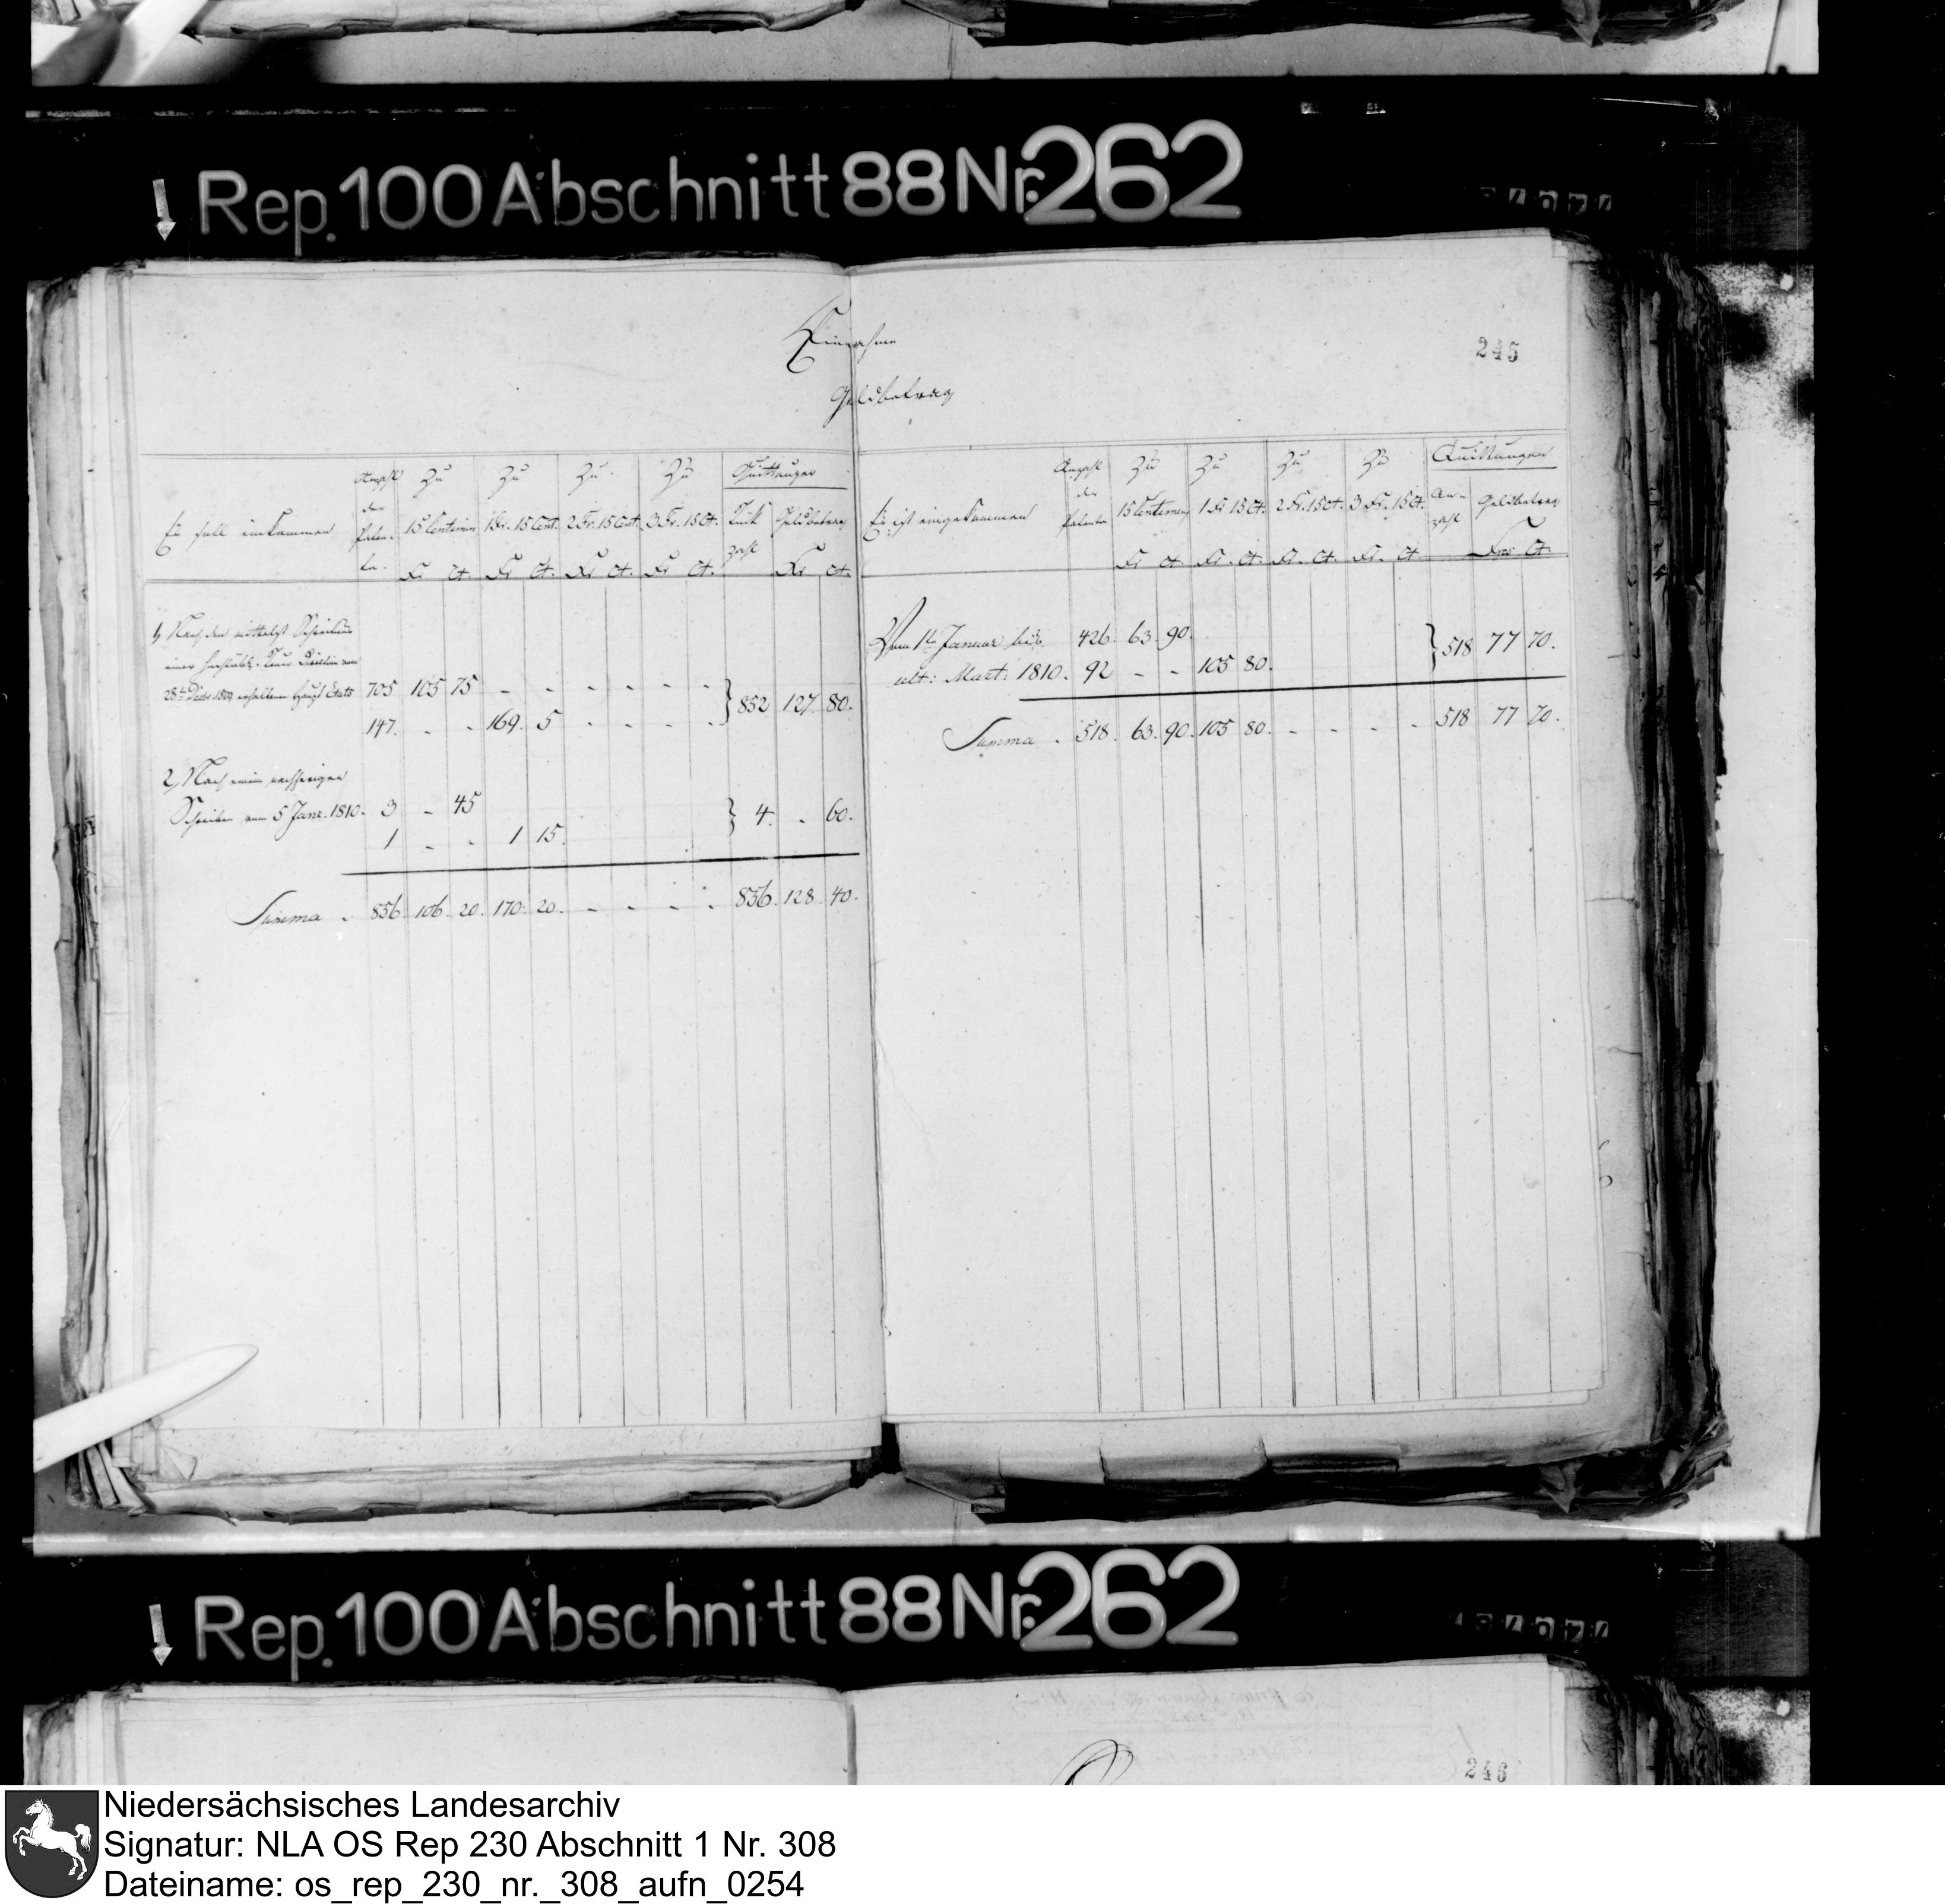 Rep. 100 Abschnitt 88 Nr. 262
Einnahme
245
Geldbetrag
Es soll einkommen
Anzahl der Paten- te.
Zu 15 Centimen Fr ct.
Zu 1 Fr. 15 Cent. Fr ct.
Zu 2 Fr. 15 Cent. Fr ct.
Zu 3 Fr. 15 Ct. Fr ct.
Quittungen
Stück zahl
Geldbetrag Fr ct.
1, Nach den mittelst Schreibens
einer
28ten Decbr 1809 erhaltenen Haupt Etats 705 105 75 - - - - - -
} 852 127. 80.
147. - - 169. 5 - - - -
2, Nach einem nachherigen
Schreiben vom 5 Janr. 1810. 3 - 45
} 4. - 60.
1 - - 1 15.
Summa - 856. 106. 20. 170. 20. - - - - 856. 128. 40.
Es ist eingekommen
Anzahl der Patente
Zu 15 Centimen Fr ct.
Zu 1 Fr 15 Ct. Fr. ct.
Zu 2 Fr. 15 ct. Fr. ct.
Zu 3 Fr. 15 Ct. Fr. ct.
Quittungen
An- zahl
Geldbetrag Frs ct.
Vom 1ten Januar bis 426. 63. 90.
} 518 77 70.
ult: Mart: 1810. 92 - - 105 80.
Summa - 518. 63. 90. 105 80. - - - - 518 77 70.
Rep. 100 Abschnitt 88 Nr. 262
246
Niedersächsisches Landesarchiv
Signatur: NLA OS Rep 230 Abschnitt 1 Nr. 308
Dateiname: os_rep_230_nr._308_aufn_0254